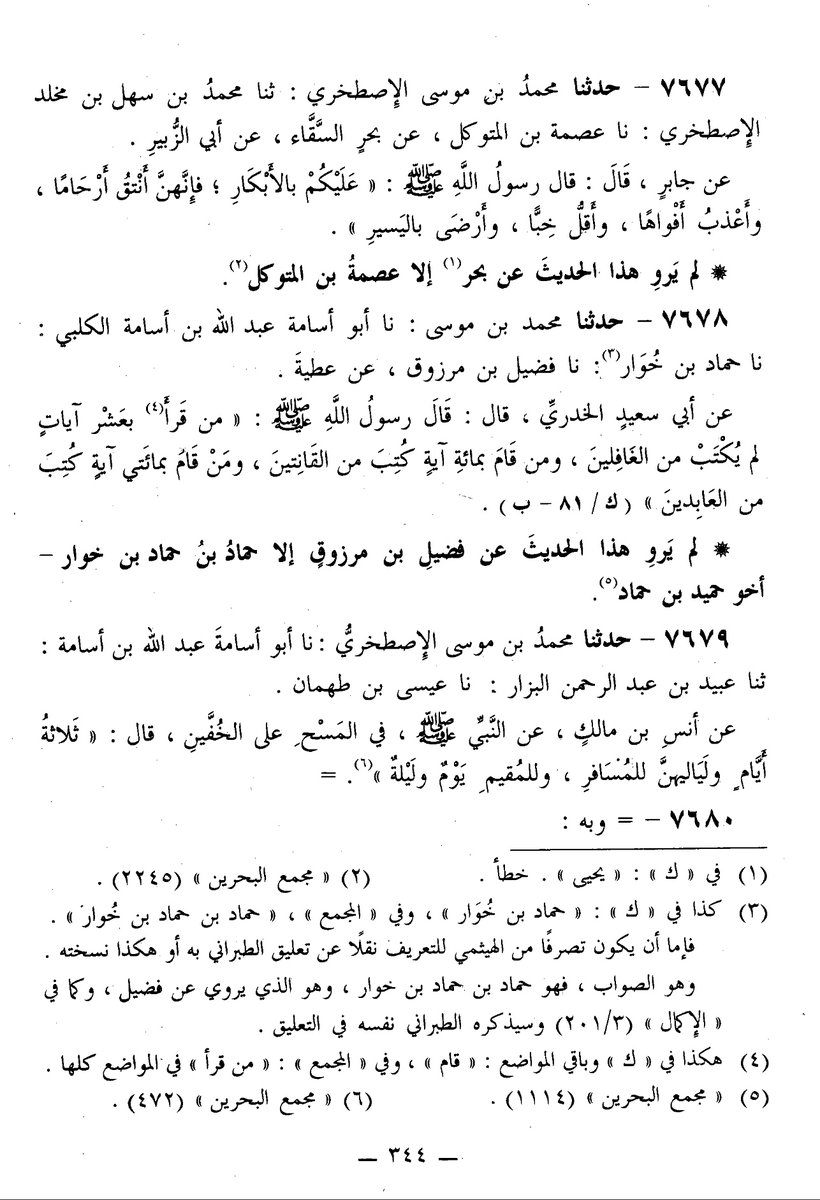 ٧٦٧٧ – حدثنا محمدُ بن موسى الإِصطخري : ثنا محمدُ بن سهل بن مخلد
الإِصطخري : نا عصمة بن المتوكل ، عن بحرٍ السقَّاء ، عن أبي الزُّبيرِ .
عن جابرٍ ، قَالَ : قال رسولُ اللَّهِ ﷺ : « عَلَيْكُمْ بالأَبْكَارِ ؛ فإِنَّهنَّ أَنْتقُ أَرْحَامًا ،
وأَعْذبُ أَفْواهًا ، وأَقلُّ خِبًّا ، وأَرْضَى باليَسيرِ » .
✷ لم يَروِ هذا الحديثَ عن بحر(١) إلا عصمةُ بن المتوكل(٢).
٧٦٧٨ – حدثنا محمد بن موسى : نا أبو أسامة عبد الله بن أسامة الكلبي :
نا حماد بن خُوَار(٣): نا فضيل بن مرزوق ، عن عطيةَ .
عن أبي سعيدٍ الخدريِّ ، قال : قَالَ رسولُ اللَّهِ ﷺ : « من قَرأَ(٤) بعَشْر آياتٍ
لم يُكْتَبْ من الغَافِلينَ ، ومن قَامَ بمائةِ آيةٍ كُتِبَ من القَانِتينَ ، ومَنْ قَامَ بمائَتي آيةٍ كُتِبَ
من العَابِدينَ » ( ك / ٨١ – ب ) .
✷ لم يَروِ هذا الحديثَ عن فضيلِ بن مرزوقٍ إلا حمادُ بنُ حماد بن خوار –
أخو حميد بن حماد(٥).
٧٦٧٩ – حدثنا محمدُ بن موسى الإِصطخريُّ : نا أبو أسامةَ عبد الله بن أسامة :
ثنا عبيد بن عبد الرحمن البزار : نا عيسى بن طهمان .
عن أنسِ بن مالكٍ ، عن النَّبيِّ ﷺ ، في المَسْحِ على الخُفَّينِ ، قال : « ثَلاثةُ
أَيَّامٍ ولَيَاليهنَّ للمُسَافرِ ، وللمُقيمِ يَوْمٌ ولَيْلةٌ »(٦). =
٧٦٨٠ – = وبه :
(١) في « ك » : « يحيى » . خطأ . (٢) « مجمع البحرين » (٢٢٤٥) .
(٣) كذا في « ك » : « حماد بن خُوَار » ، وفي « المجمع » ، « حماد بن حماد بن خُوار » .
فإما أن يكون تصرفًا من الهيثمي للتعريف نقلًا عن تعليق الطبراني به أو هكذا نسخته .
وهو الصواب ، فهو حماد بن حماد بن خوار ، وهو الذي يروي عن فضيل ، وكما في
« الإِكمال » (٢٠١/٣) وسيذكره الطبراني نفسه في التعليق .
(٤) هكذا في « ك » وباقي المواضع : « قام » ، وفي « المجمع » : « من قرأ » في المواضع كلها .
(٥) « مجمع البحرين » (١١١٤) . (٦) « مجمع البحرين » (٤٧٢) .
– ٣٤٤ –